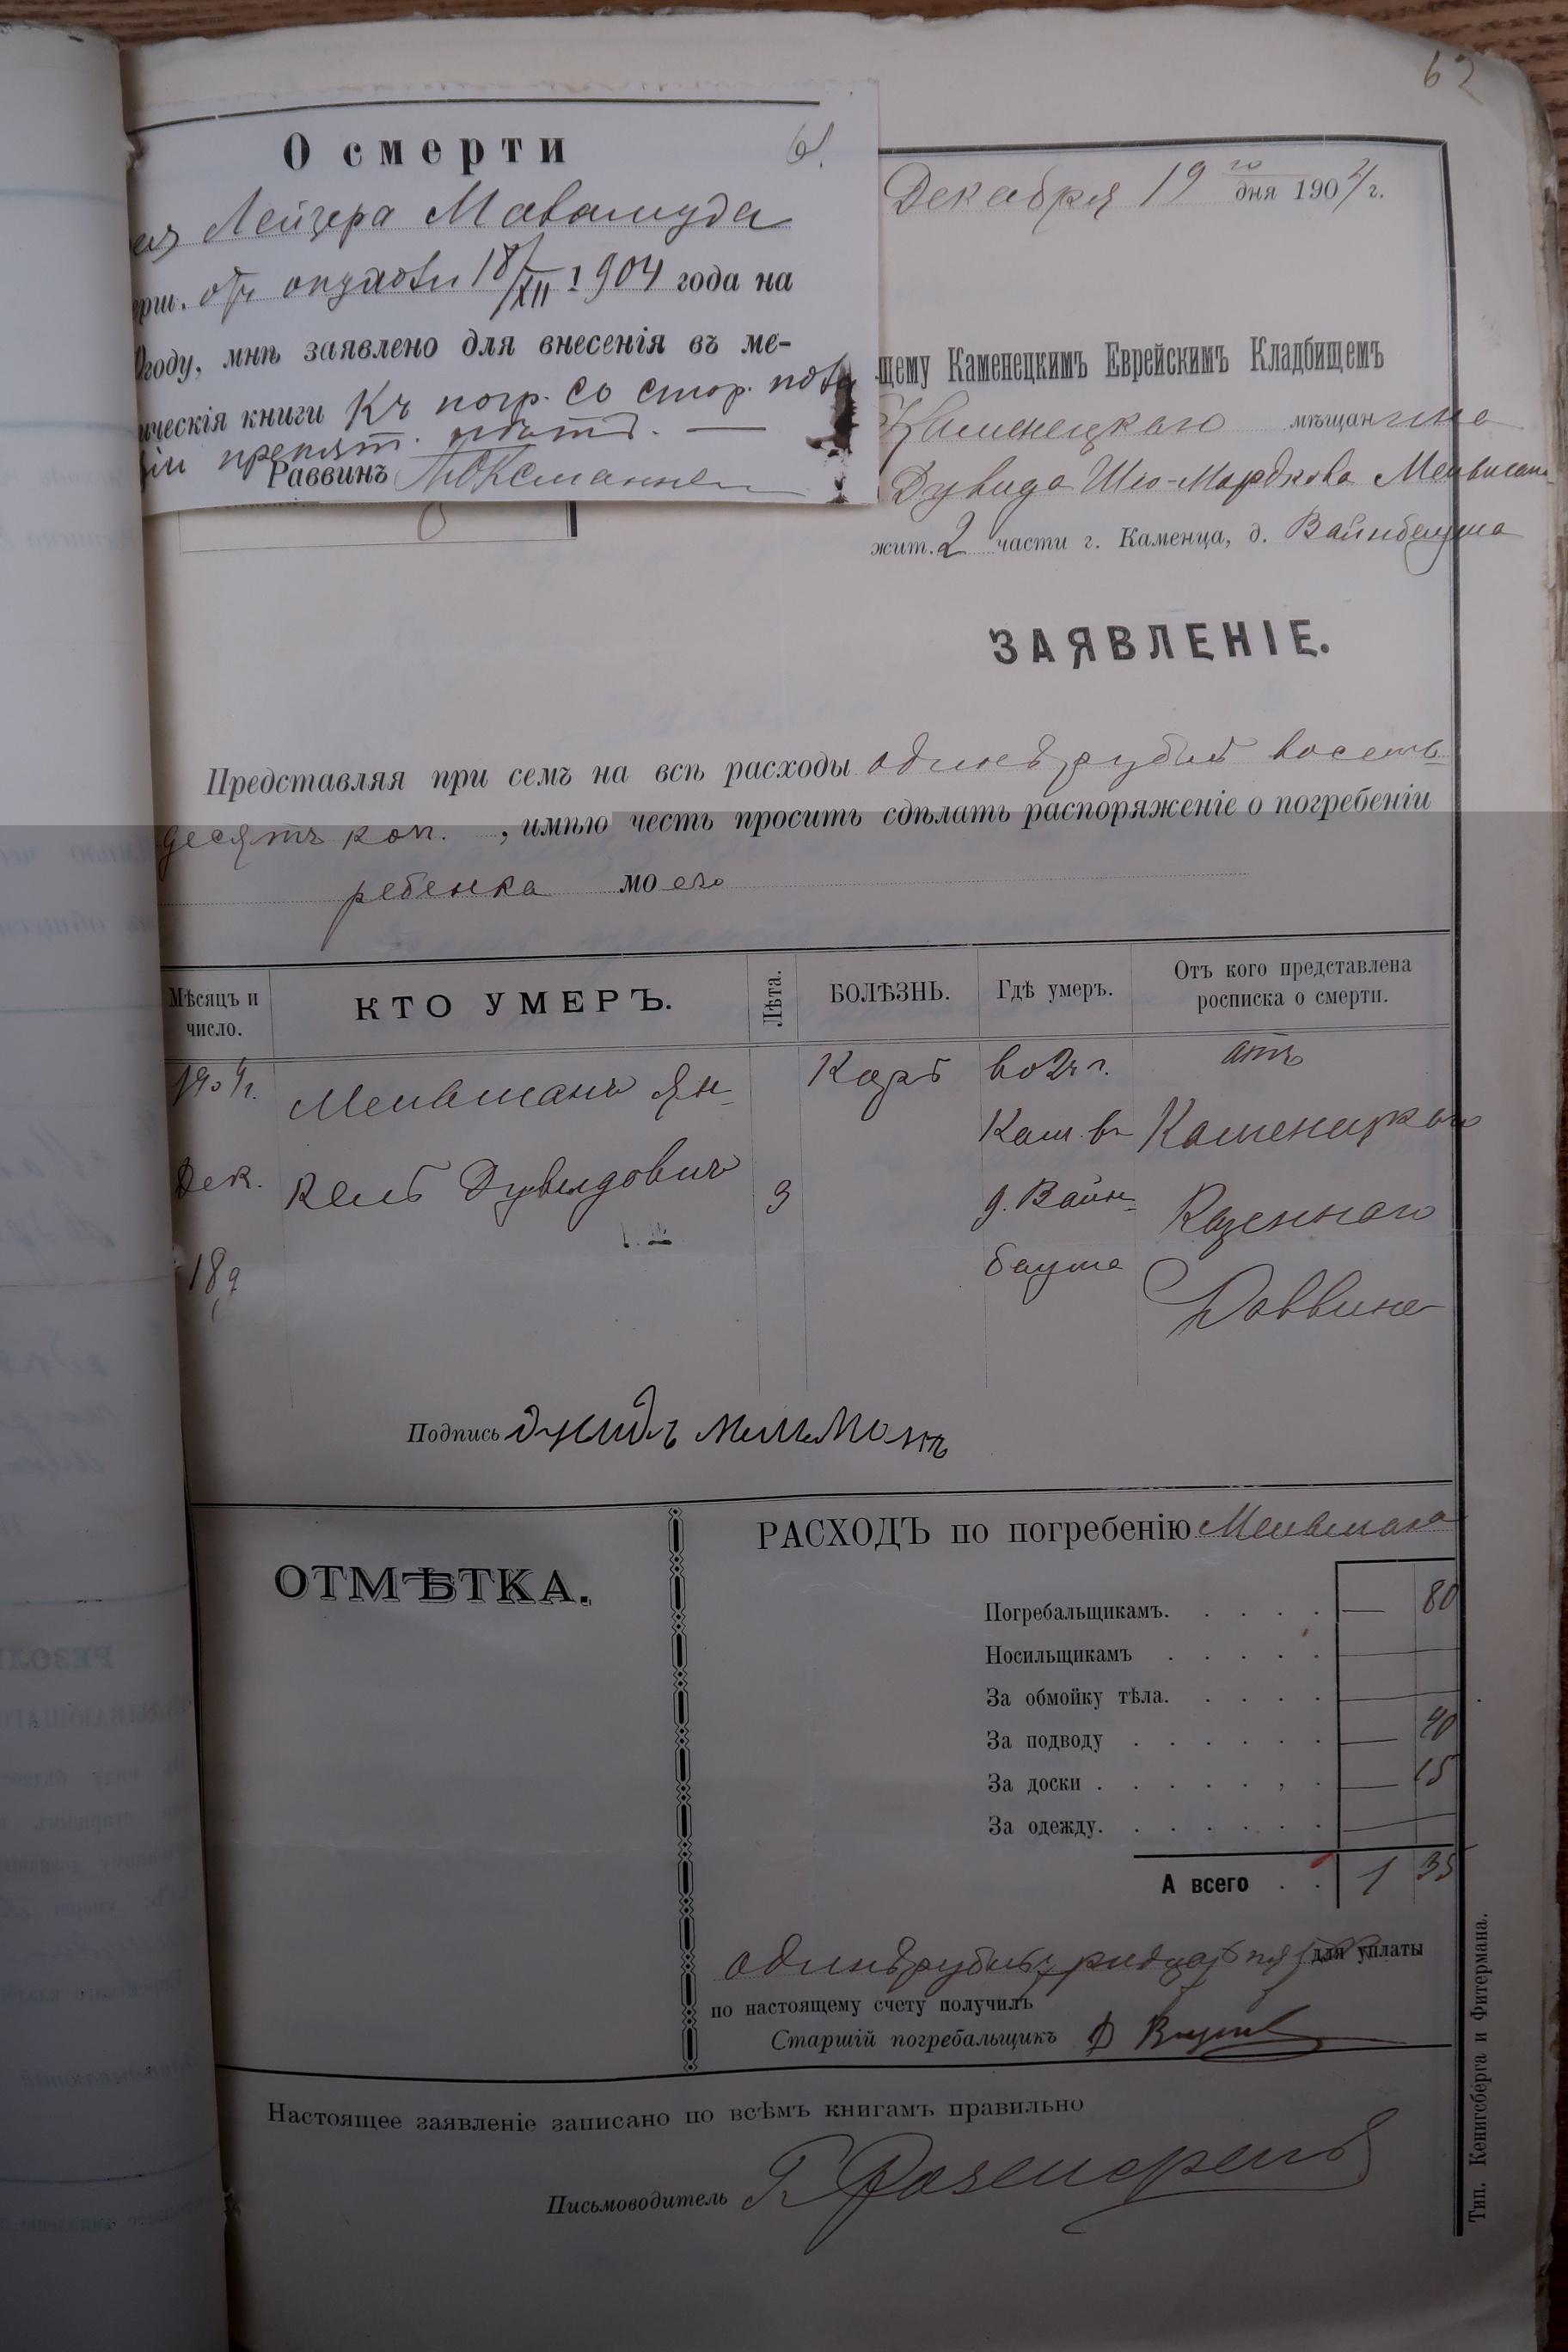 62
О смерти
61.
Лейзера
от опухоли 18/XII 1904 года на
году, мнѣ заявлено для внесенія въ ме-
ческія книги Къ погр. со стор.
препят.
Раввинъ
Декабря 19 го дня 1904 г.
щему Каменецкимъ Еврейскимъ Кладбищемъ
Каменецкаго мѣщанина
Дувида Шио-Мордкова
жит. 2 части г. Каменца, д. Вайнбаума
ЗАЯВЛЕНІЕ.
Представляя при семъ на всѣ расходы одинъ рубль восемь-
десятъ коп. , имѣю честь просить сдѣлать распоряженіе о погребеніи
ребенка моего
Мѣсяцъ и число.
КТО УМЕРЪ.
Лѣта.
БОЛѢЗНЬ.
Гдѣ умеръ.
Отъ кого представлена росписка о смерти.
1904 г.
Дек.
18
Мельманъ Ян-
кель Дувидович
3
Корь
во 2 ч г.
Кам. въ
д. Вайн-
баума
отъ
Каменецкаго
Казеннаго
Раввина
Подпись
РАСХОДЪ по погребенію Мельмана
ОТМѢТКА.
Погребальщикамъ. — 80
Носильщикамъ —
За обмойку тѣла. —
За подводу — 40
За доски — 15
За одежду. —
А всего 1 35
одинъ рубль тридцать пять к для уплаты
по настоящему счету получилъ
Старшій погребальщикъ
Настоящее заявленіе записано по всѣмъ книгамъ правильно
Письмоводитель
Тип. Кенигсберга и Фитермана.